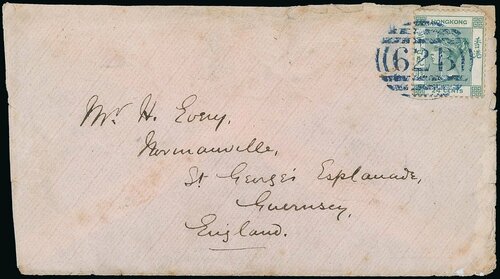 HONGKONG
62B
Mr H. Every,
Normanville,
St George's Esplanade,
Guernsey,
England.